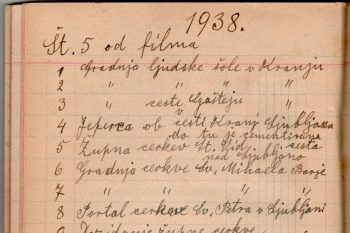 1938.
Št. 5 od filma
1 Gradnja ljudske šole v Kranju
2 " " " "
3 " ceste Gašteju "
4 Jeperca ob cesti Kranj Ljubljana
do tu je cementirana
5 Župna cerkev Št. Vid. cesta
nad Ljubljano
6 Gradnja cerkve Sv. Mihaela Barje
7 " " " "
8 Portal cerkve Sv. Petra v Ljubljani
9 župne cerkve